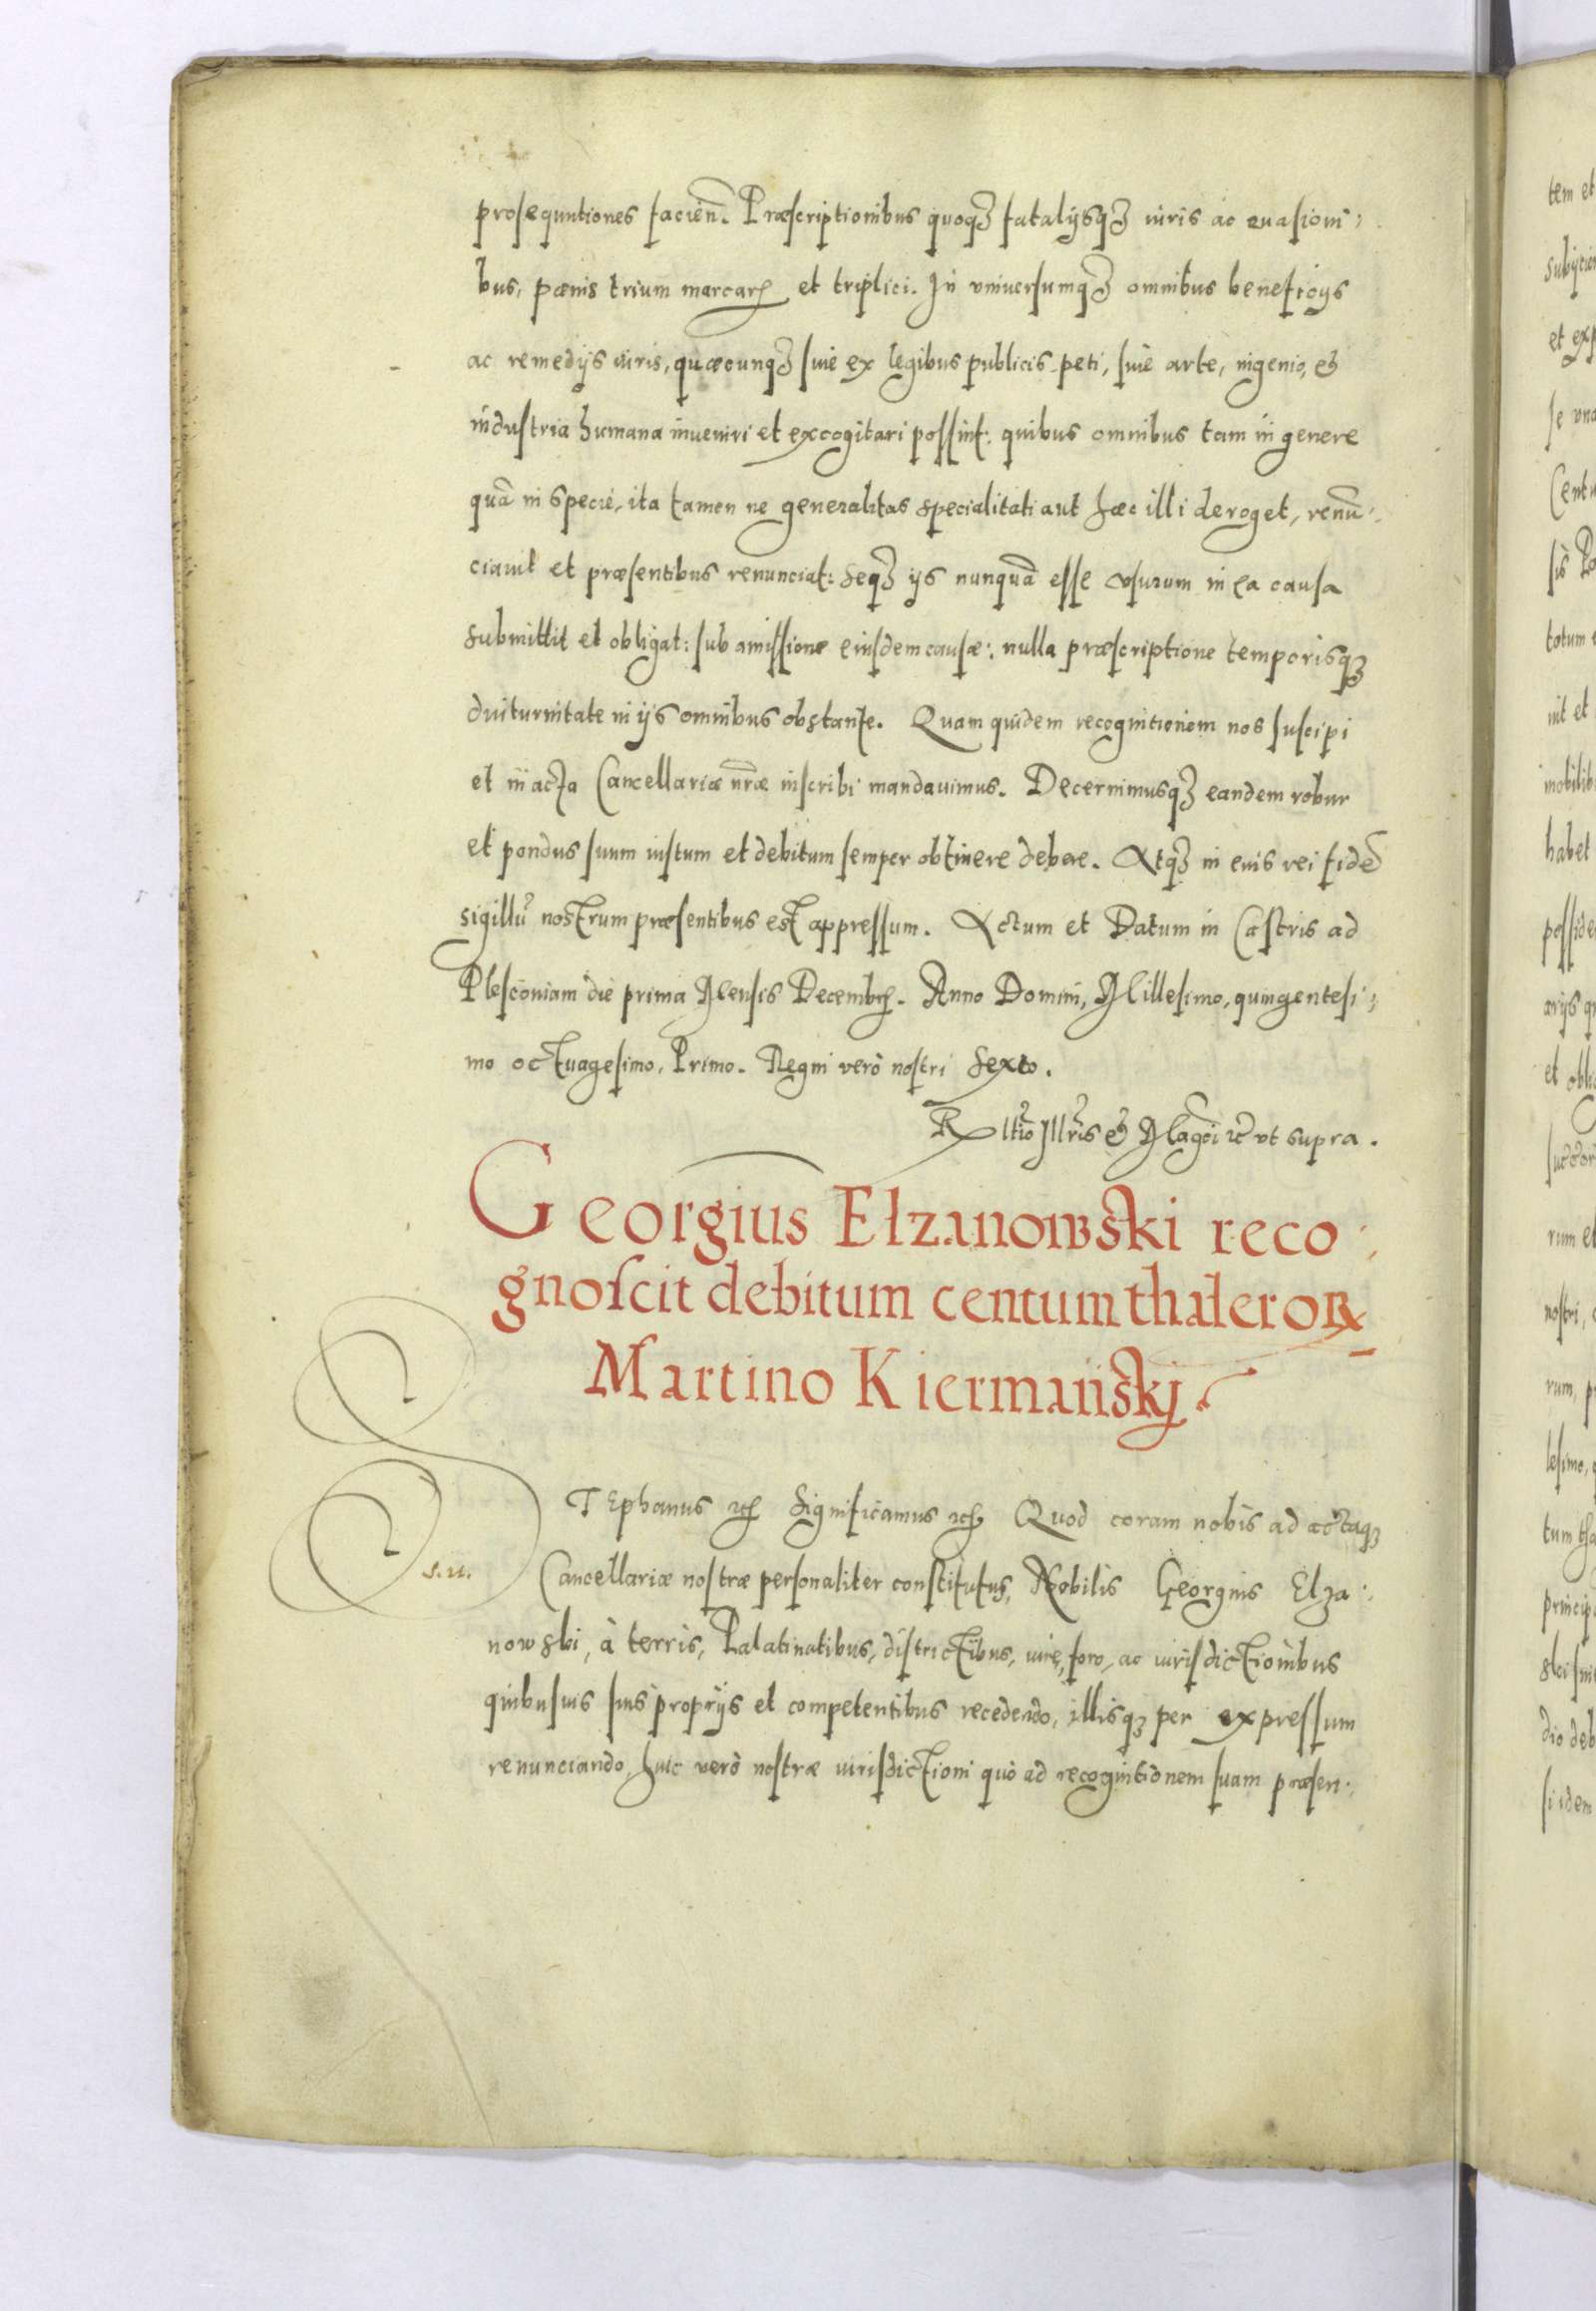 prosequutiones facieñ. Præscriptionibus quoqꝫ fatalijsqꝫ iuris ac euasioni:
bus, pœnis trium marcarꝝ et triplici. In vniuersumqꝫ omnibus beneficijs
ac remedijs iuris, quæcunqꝫ siue ex legibus publicis peti, siue arte, ingenio, et
industria humana inueniri et excogitari possint: quibus omnibus tam in genere
quã in specie, ita tamen ne generalitas specialitati aut hæc illi deroget, renũ:
ciauit et præsentibus renunciat: seqꝫ ijs nunquã esse vsurum in ea causa
submittit et obligat: sub amissione eiusdem causæ: nulla præscriptione temporisqꝫ
diuturnitate in ijs omnibus obstante. Quam quidem recognitionem nos suscipi
et in acta Cancellariæ nr̃æ inscribi mandauimus. Decernimusqꝫ eandem robur
et pondus suum iustum et debitum semper obtinere debere. Atqꝫ in cuis rei fidẽ
sigillũ nostrum præsentibus est appressum. Actum et Datum in Castris ad
Plesconiam die prima Mensis Decembꝝ. Anno Domini, Millesimo, quingentesi:
mo octuagesimo, Primo. Regni verò nostri sexto.
Rltio Illr̃is et Magci ꝛc̃ vt supra.
Georgius Elzanowski reco:
gnoscit debitum centum thaleroꝝ
Martino Kiermański.
S. R.
TEphanus ꝛcꝫ Significamus ꝛcꝫ Quod coram nobis ad actaqꝫ
Cancellariæ nostræ personaliter constitutus, Nobilis Georgius Elza:
nowski, à terris, Palatinatibus, districtibus, iure, foro, ac iurisdictionibus
quibusuis suis proprijs et competentibus recedendo, illisqꝫ per expressum
renunciando, huic verò nostræ iurisdictioni quò ad recognitionem suam præsen: